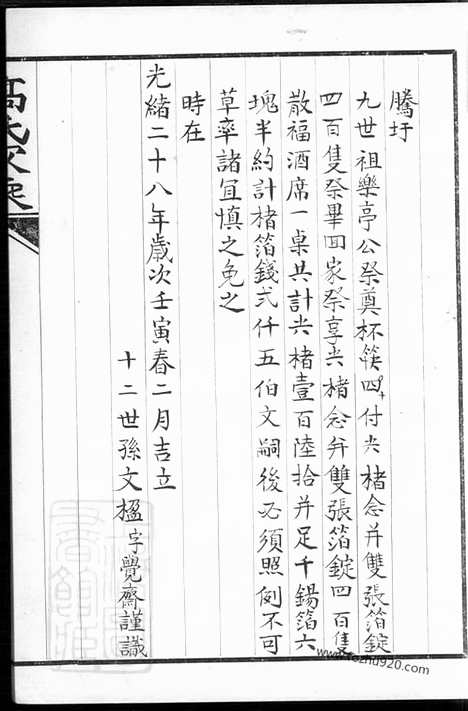 騰圩
九世祖樂亭公祭奠杯筷四十付尖楮念并雙張箔錠
四百隻祭畢回家祭享尖楮念并雙張箔錠四百隻
散福酒席一桌共計尖楮壹百陸拾并足千錫箔六
塊半約計楮箔錢弍仟五伯文嗣後必須照例不可
草率諸宜慎之免之
時在
光緒二十八年歲次壬寅春二月吉立
十二世孫文楹字覺齋謹識
www.fozhu920.com